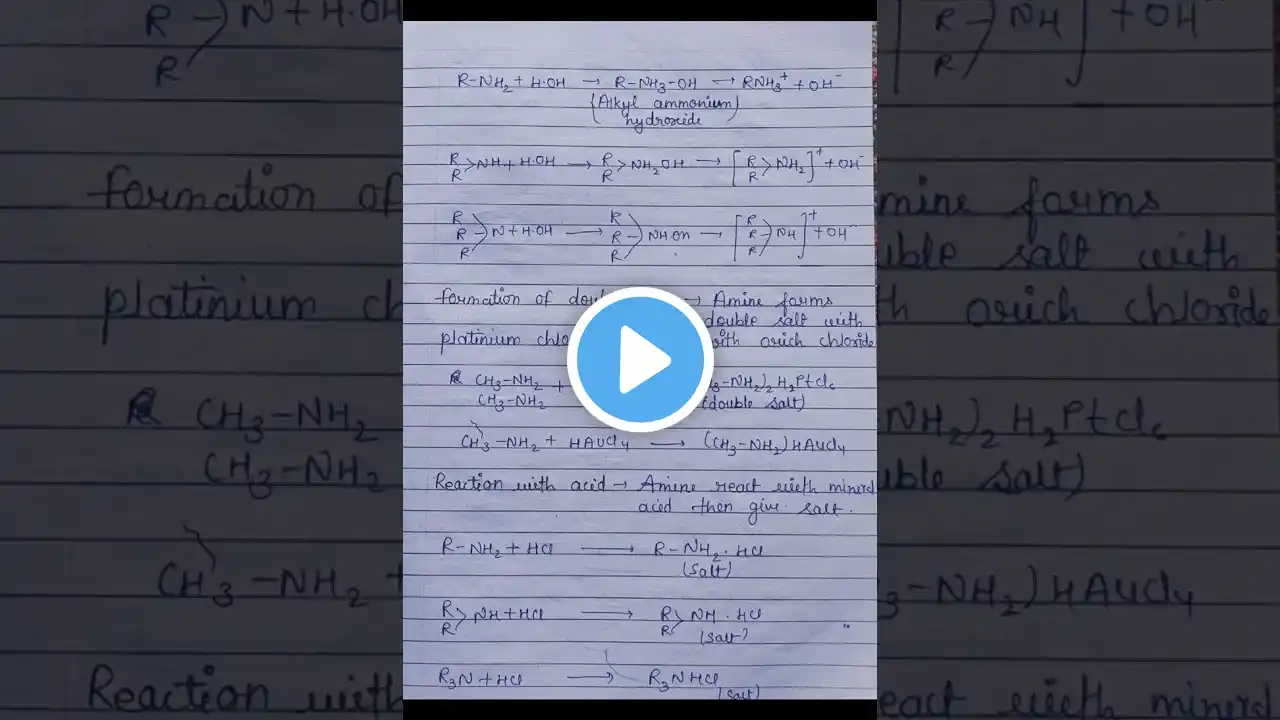 R-NH₂ + H·OH → R-NH₃-OH → RNH₃⁺ + OH⁻
(Alkyl ammonium)
hydroxide
R
R > NH + H·OH → R
R > NH₂OH → [R
R > NH₂]⁺ + OH⁻
R
R
R > N + H·OH → R
R
R > NHOH → [R
R
R > NH]⁺ + OH⁻
formation of → Amine forms
double salt with
platinium with orich chloride
CH₃-NH₂ +
CH₃-NH₂ (double salt)
-NH₂)₂ H₂PtCl₆
CH₃-NH₂ + HAuCl₄ → (CH₃-NH₂)HAuCl₄
Reaction with acid → Amine react with mineral
acid then give salt.
R-NH₂ + HCl → R-NH₂·HCl
(salt)
R
R > NH + HCl → R
R > NH·HCl
(salt)
R₃N + HCl → R₃NHCl
(salt)